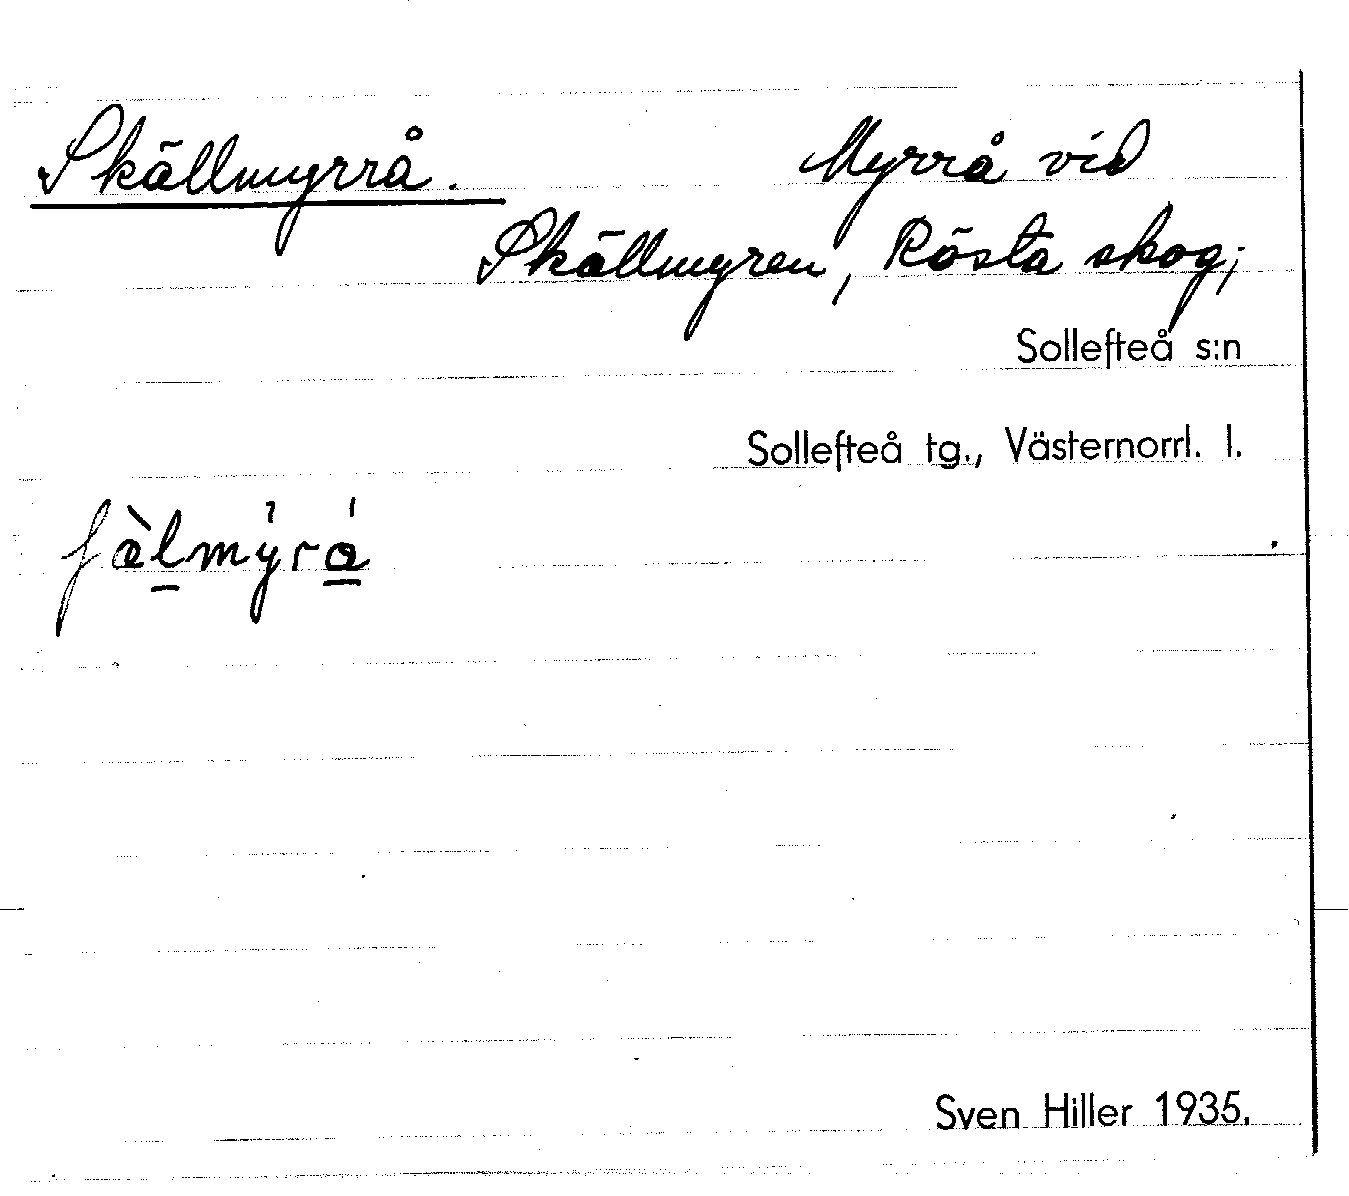 Skällmyrrå. Myrrå vid
Skällmyren, Rösta skog;
Sollefteå s:n
Sollefteå tg., Västernorrl. l.
Sven Hiller 1935.